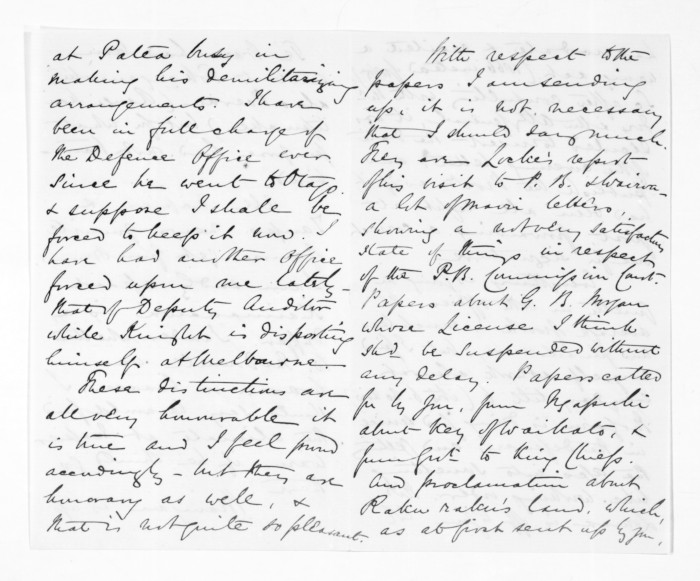 at Patea busy in
making his demilitarizing
arrangements. I have
been in full charge of
the Defence Office ever
since he went to Otago.
& suppose I shall be
forced to keep it now. I
have had another Office
forced upon me lately -
that of Deputy Auditor
while Knight is disporting
himself at Melbourne.
These distinctions are
all very honourable it
is true and I feel proud
accordingly - but they are
honorary as well, &
that is not quite so pleasant.
With respect to the
papers I am sending
up, it is not necessary
that I should say much.
They are Locke's report
of his visit to P. B. & Wairoa -
a lot of maori letters,
showing a not very satisfactory
state of things in respect
of the P.B. Commission Court.
Papers about G. B.
whose License I think
shd be suspended without
any delay. Papers called
for by you, from Ngapuhi
about Key of Waikato, &
from Govt to King Chiefs.
And proclamation about
Rakuraku's land, which,
as at first sent up by you,